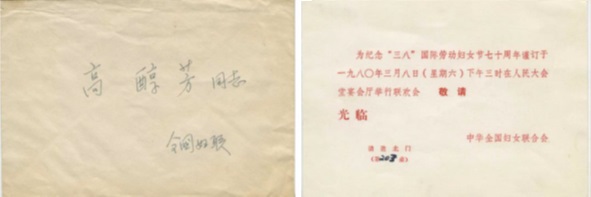 高醇芳同志
全国妇联
为纪念“三八”国际劳动妇女节七十周年谨订于
一九八〇年三月八日（星期六）下午三时在人民大会
堂宴会厅举行联欢会 敬请
光临
中华全国妇女联合会
请进北门